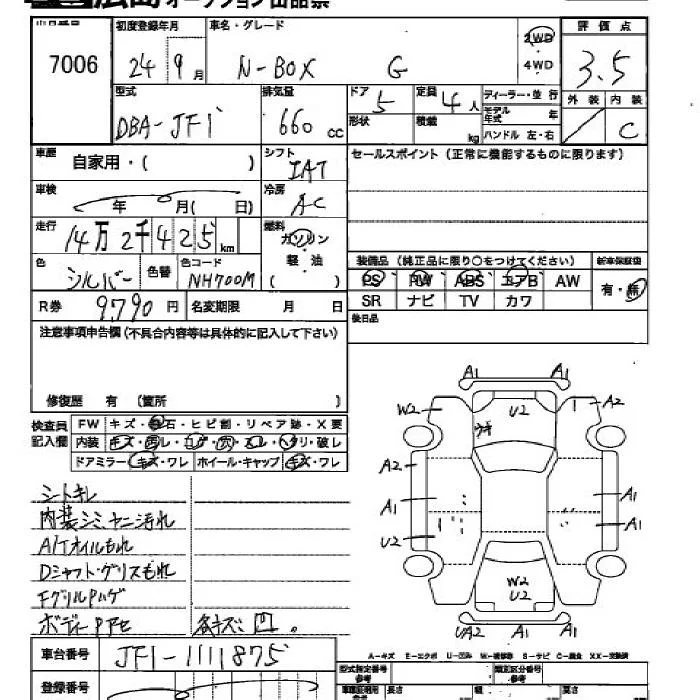 広島 オークション 出品票
出品番号 初度登録年月 車名・グレード 評価点
7006 24年9月 N-BOX G 2WD 4WD 3.5
型式 排気量 ドア 定員 ディーラー・並行 外装 内装
DBA-JF1 660cc 5 4人 モデル年式 年 C
形状 積載 kg ハンドル 左・右
車歴 自家用・( ) シフト IAT セールスポイント (正常に機能するものに限ります)
車検 年 月( 日) 冷房 AC
走行 14万2千425km 燃料 ガソリン 軽油 ( )
装備品 (純正品に限り○をつけてください) 新車保証書
色 シルバー 色替 色コード NH700M
PS PW ABS エアB AW 有・無
SR ナビ TV カワ
R券 9790円 名変期限 月 日
後日品
注意事項申告欄 (不具合内容等は具体的に記入して下さい)
修復歴 有 (箇所 )
検査員記入欄 FW キズ・飛石・ヒビ割・リペア跡・X要
内装 キズ・汚レ・コゲ・穴・スレ・ヘタリ・破レ
ドアミラー キズ・ワレ ホイール・キャップ キズ・ワレ
シートキレ
内装シミ、ヤニ汚れ
A/Tオイルもれ
Dシャフト・グリスもれ
FグリルPハゲ
ボディーPアセ 各キズ凹。
A1 A1
W2 U2 A2
ウキ
A2
A1 A1
U2 A1
W2
U2
UA2 A1 A1
車台番号 JF1-1111875
A-キズ E-エクボ U-凹み W-補修跡 S-サビ C-腐食 XX-交換済
登録番号
型式指定番号 参考 類別区分番号 参考
長さ 幅 高さ